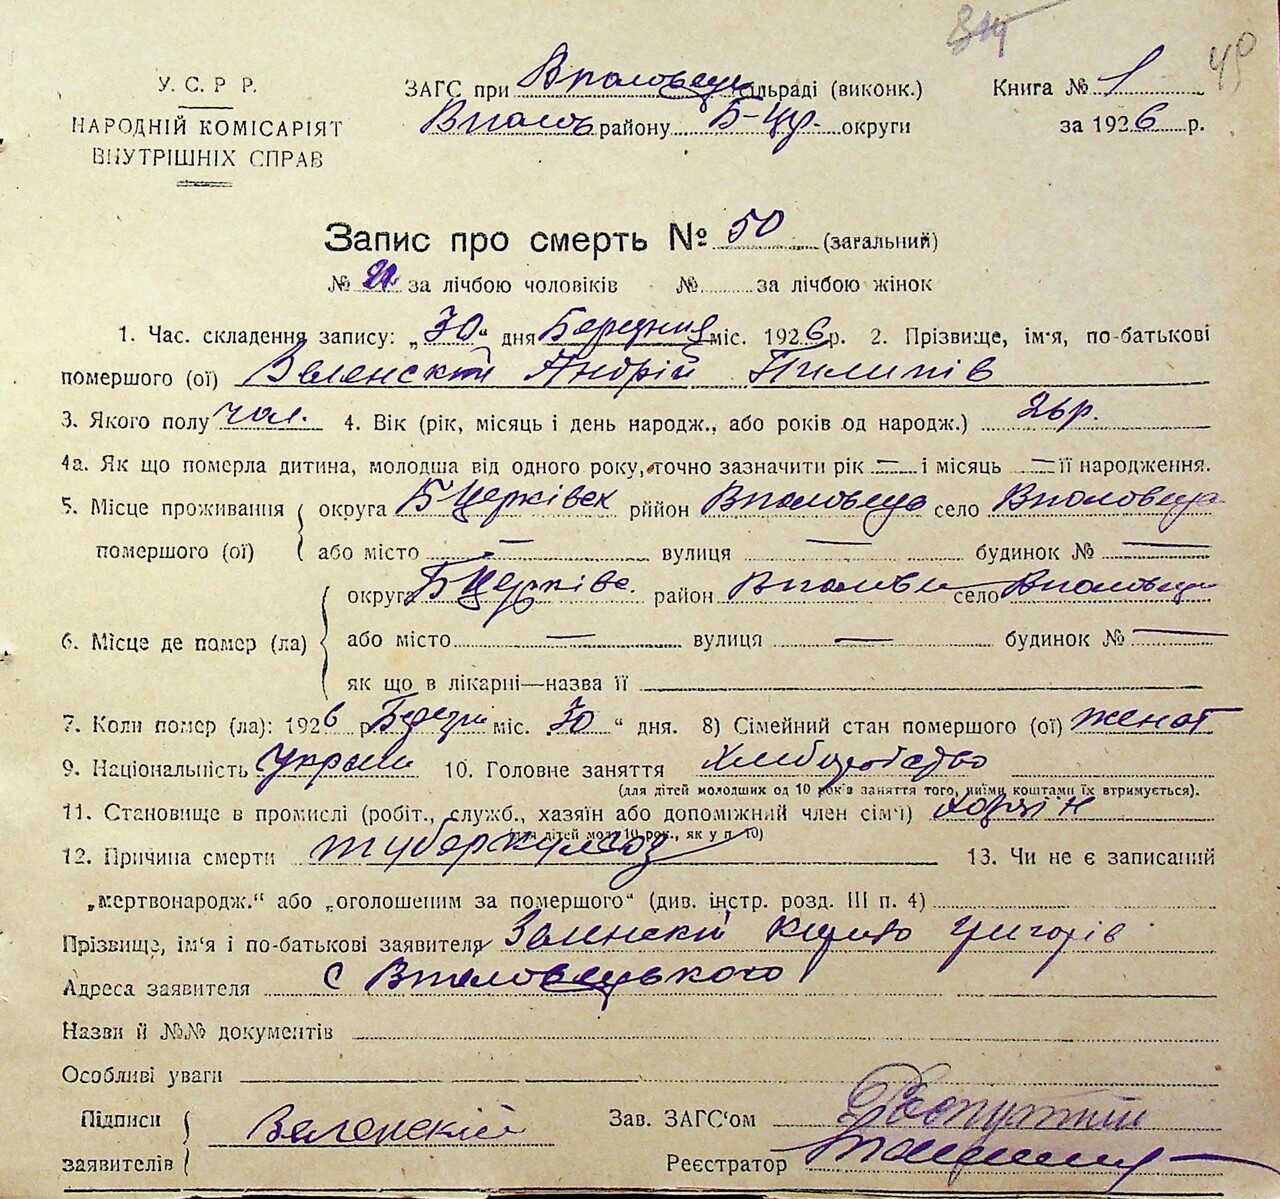 49
У. С. Р. Р.
НАРОДНІЙ КОМІСАРІЯТ
ВНУТРІШНІХ СПРАВ
ЗАГС при Вполовецьк сільраді (виконк.)
Вполов району Б-Цр. округи
Книга № 1
за 1926 р.
Запис про смерть № 50 (загальний)
№ за лічбою чоловіків № за лічбою жінок
1. Час. складення запису: „30“ дня Березня міс. 1926 р. 2. Прізвище, ім'я, по-батькові
помершого (ої) Зеленский Андрій Пилипів
3. Якого полу чол. 4. Вік (рік, місяць і день народж., або років од народж.) 26 р.
4а. Як що померла дитина, молодша від одного року, точно зазначити рік — і місяць — її народження.
5. Місце проживання помершого (ої) { округа Б Церківск рййон Вполовець село Вполовеця
або місто — вулиця — будинок № —
6. Місце де помер (ла) { округа Б Церківс. район Вполовец село Вполовец
або місто — вулиця — будинок № —
як що в лікарні—назва її
7. Коли помер (ла): 1926 р Березн міс. 30 “ дня. 8) Сімейний стан помершого (ої) женат
9. Національність Украін 10. Головне заняття Хлиборобство
(для дітей молодших од 10 років заняття того, чиїми коштами їх втримується).
11. Становище в промислі (робіт., служб., хазяїн або допоміжний член сім'ї) хазяін
(для дітей мол. 10 рок., як у п. 10)
12. Причина смерти туберкульоз 13. Чи не є записаний
„мертвонародж.“ або „оголошеним за помершого“ (див. інстр. розд. III п. 4)
Прізвище, ім'я і по-батькові заявителя Зеленский Кирило Григорів
Адреса заявителя с Вполовецького
Назви й №№ документів
Особливі уваги
Підписи заявителів { Зеленский
Зав. ЗАГС'ом
Реєстратор